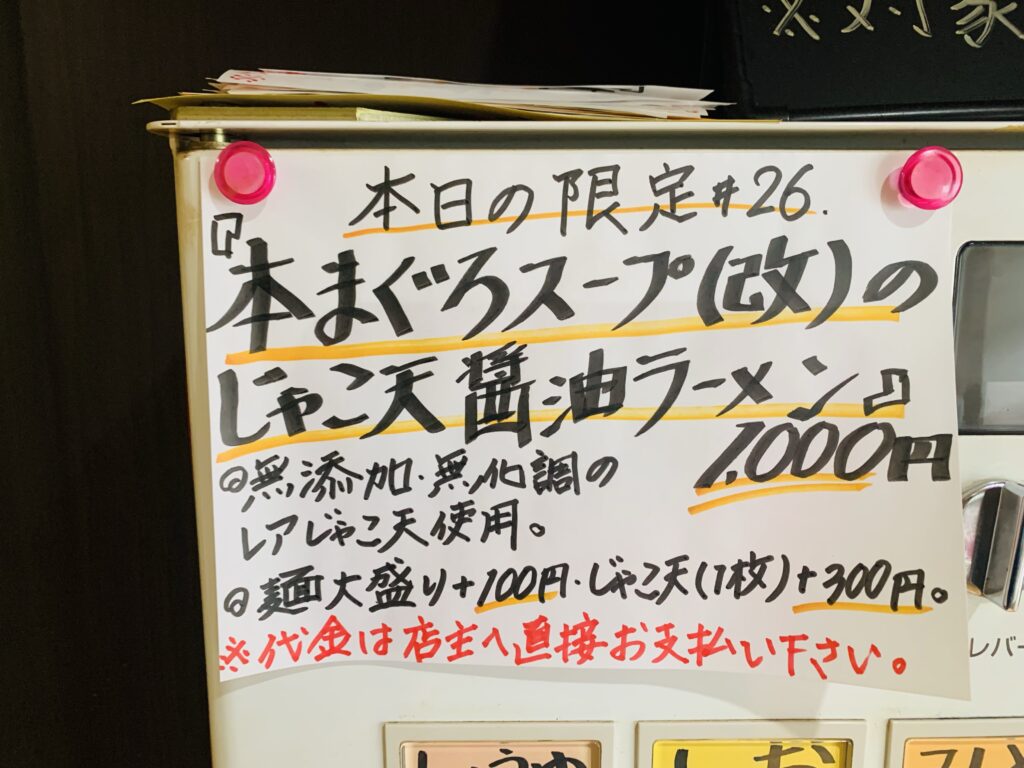 ※対象
本日の限定#26.
『本まぐろスープ(改)の
じゃこ天醤油ラーメン』
1.000円
◎無添加・無化調の
レアじゃこ天使用。
◎麺大盛り+100円・じゃこ天(1枚)+300円。
※代金は店主へ直接お支払い下さい。
レバー
しょうゆ
しお